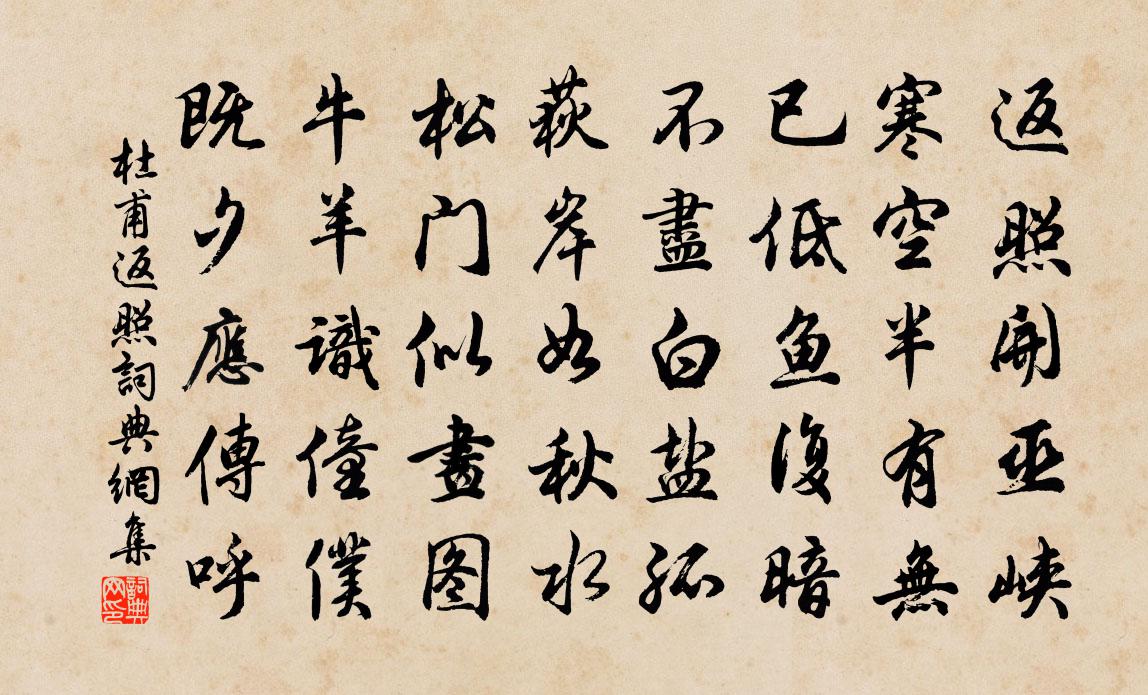 返照開巫峽
寒空半有無
已低魚復暗
不盡白盐孤
荻岸如秋水
松门似畫图
牛羊識僮僕
既夕應傳呼
杜甫返照詞典網集
詞典網印